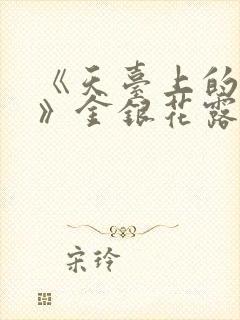 《天臺上的
》金銀花露
宋玲